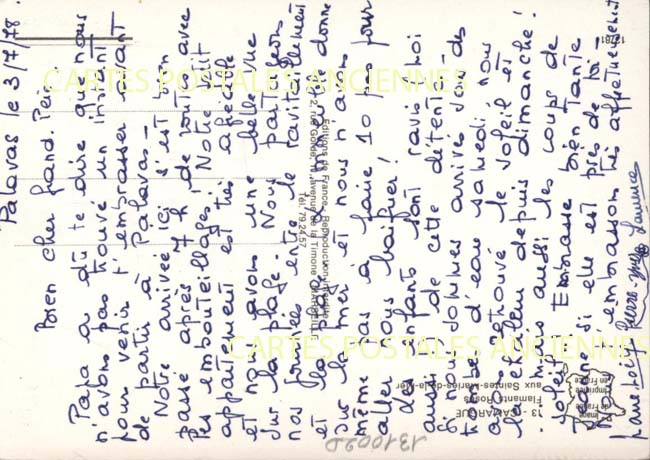 Palavas le 3/7/78.
Bien cher grand. Père
Papa a dû te dire que nous
n'avons pas trouvé un instant
pour venir t'embrasser avant
de partir à Palavas -
Notre arrivée ici s'est bien
passé après 7 h de route avec
les embouteillages! Notre petit
appartement est très agréable
et nous avons une belle vue
sur la plage. Nous partageons
nos journées entre le ravitaillement
et la plage. La donne
sur la mer et nous n'avons
même pas à faire 10 pas pour
aller nous baigner!
Les enfants sont ravis, moi
aussi de cette détente-
Si nous sommes arrivés sous des
trombes d'eau samedi, nous
avons retrouvé le soleil et
le ciel bleu depuis dimanche!
mais aussi les coups de
soleil! Embrasse bien tante
Jeanne si elle est près de toi-
Nous t'embrassons très affectueusement
Pierre-Yves Laurence
CARTES POSTALES ANCIENNES
CARTES POSTALES ANCIENNES
Editions de France Reproduction interdite
2, rue Goudé, 10, avenue de la Timone MARSEILLE
Tél. 79.24.57
13 - CAMARGUE
Flamants Roses
aux Saintes-Maries-de-la-Mer
Image
de France
Imprimée
en France
1310020